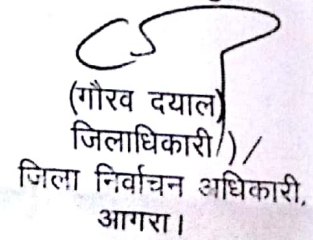 (गौरव दयाल)
जिलाधिकारी/)/
जिला निर्वाचन अधिकारी,
आगरा।